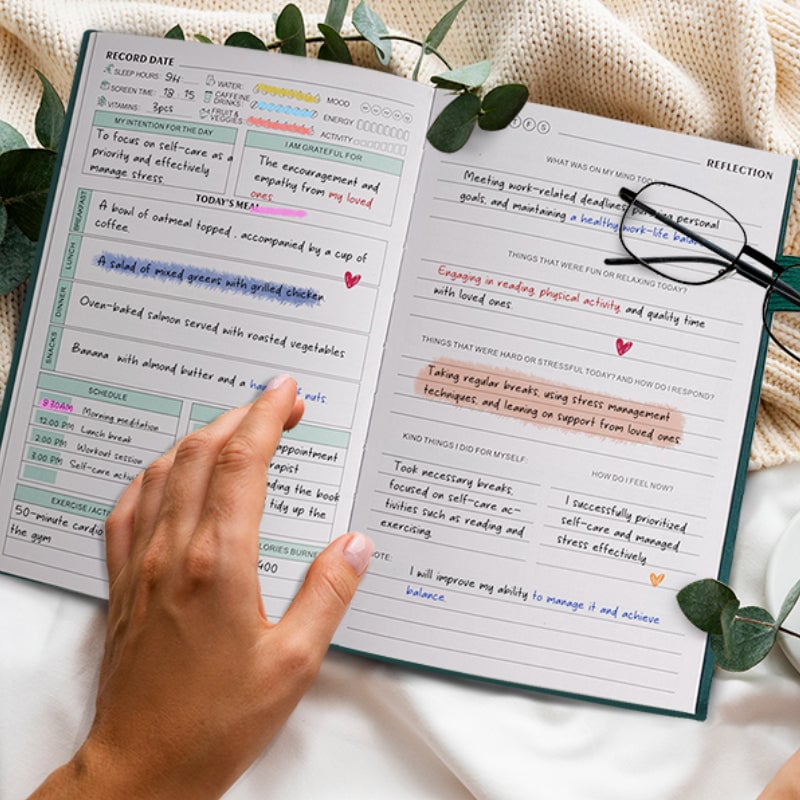 RECORD DATE
SLEEP HOURS: 9H
SCREEN TIME: 18:15
VITAMINS: 3pcs
WATER:
CAFFEINE DRINKS:
FRUIT & VEGGIES:
MOOD
ENERGY
ACTIVITY
MY INTENTION FOR THE DAY
To focus on self-care as a
priority and effectively
manage stress.
I AM GRATEFUL FOR
The encouragement and
empathy from my loved
ones.
TODAY'S MEAL
BREAKFAST
A bowl of oatmeal topped, accompanied by a cup of
coffee.
LUNCH
A salad of mixed greens with grilled chicken
DINNER
Oven-baked salmon served with roasted vegetables
SNACKS
Banana with almond butter and a nuts.
SCHEDULE
8:30AM Morning meditation
12:00 PM Lunch break
2:00 PM Workout session
3:00 PM Self-care
appointment
the book
tidy up the
50-minute cardio
the gym
400
T F S
REFLECTION
WHAT WAS ON MY MIND
Meeting work-related deadlines, personal
goals, and maintaining a healthy work-life
THINGS THAT WERE FUN OR RELAXING TODAY?
Engaging in reading, physical activity, and quality time
with loved ones.
THINGS THAT WERE HARD OR STRESSFUL TODAY? AND HOW DO I RESPOND?
Taking regular breaks, using stress management
techniques, and leaning on support from loved ones.
KIND THINGS I DID FOR MYSELF:
Took necessary breaks,
focused on self-care ac-
tivities such as reading and
exercising.
HOW DO I FEEL NOW?
I successfully prioritized
self-care and managed
stress effectively.
I will improve my ability to manage it and achieve
balance.